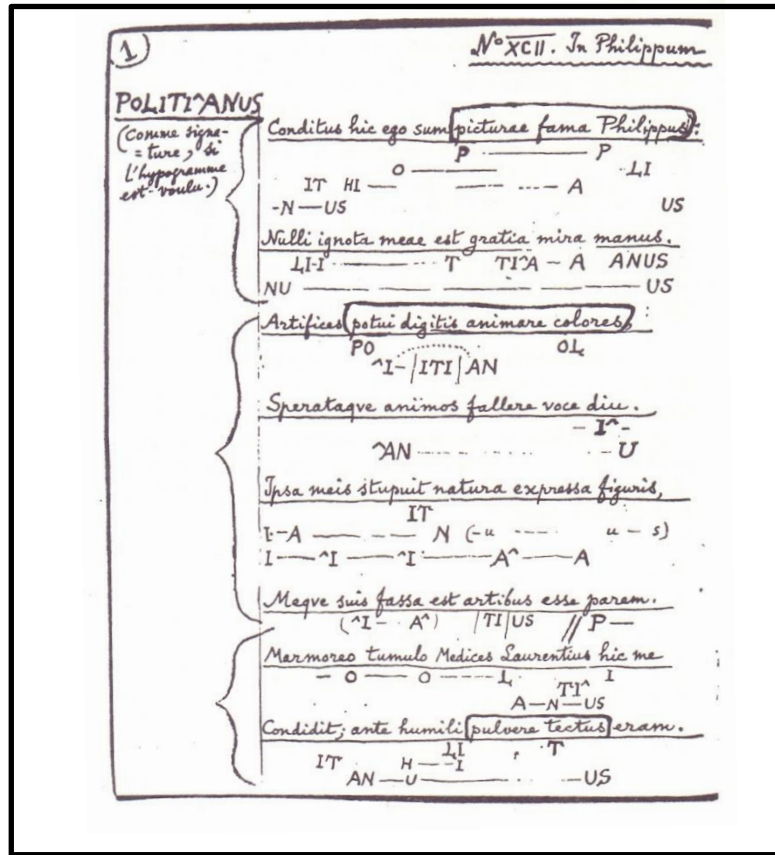 1
No XCII. In Philippum
POLITI^ANUS
(Comme signa-
=ture, si
l'hypogramme
est voulu.)
Conditus hic ego sum picturae fama Philippus:
P P
O LI
IT HI A
-N — US US
Nulli ignota meae est gratia mira manus.
LI-I T TI^A — A ANUS
NU US
Artifices potui digitis animare colores,
PO OL
^I- |ITI| AN
Sperataqve animos fallere voce diu.
- I^ -
^AN U
Ipsa meis stupuit natura expressa figuris,
IT
I-A N (-u u — s)
I ^I ^I A^ A
Meqve suis fassa est artibus esse parem.
(^I- A^) |TI| US // P —
Marmoreo tumulo Medices Laurentius hic me
- O — O L I
TI^
A — N — US
Condidit; ante humili pulvere tectus eram.
LI T
IT H I
AN — U US